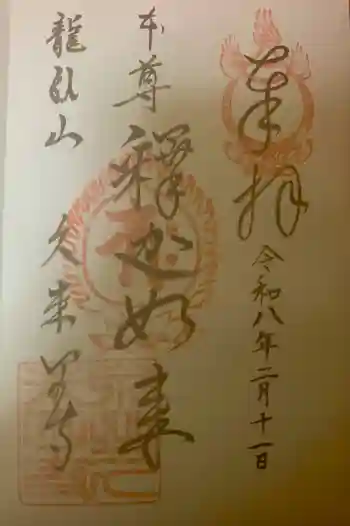 奉拝
令和八年二月十一日
本尊
釋迦如来
龍
山
久来
寺